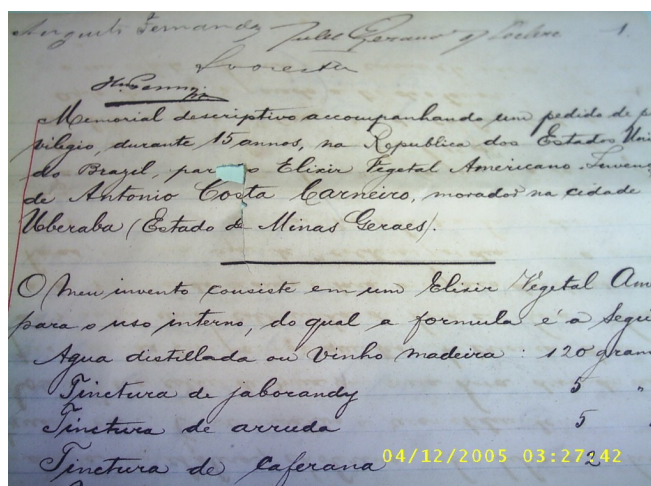 Fernandez Jules Gerand 1.
Memorial descriptivo accompanhando um pedido de p
vilegio, durante 15 annos, na Republica dos Estados Uni
do Brazil, para o Elixir Vegetal Americano. Inven
de Antonio Costa Carneiro, morador na cidade
Uberaba (Estado de Minas Geraes).
O meu invento consiste em um Elixir Vegetal Am
para o uso interno, do qual a formula é a Segui
Agua distillada ou Vinho madeira : 120 gram
Tinctura de jaborandy 5 "
Tinctura de arruda 5 "
Tinctura de Caferana 2
04/12/2005 03:27:42